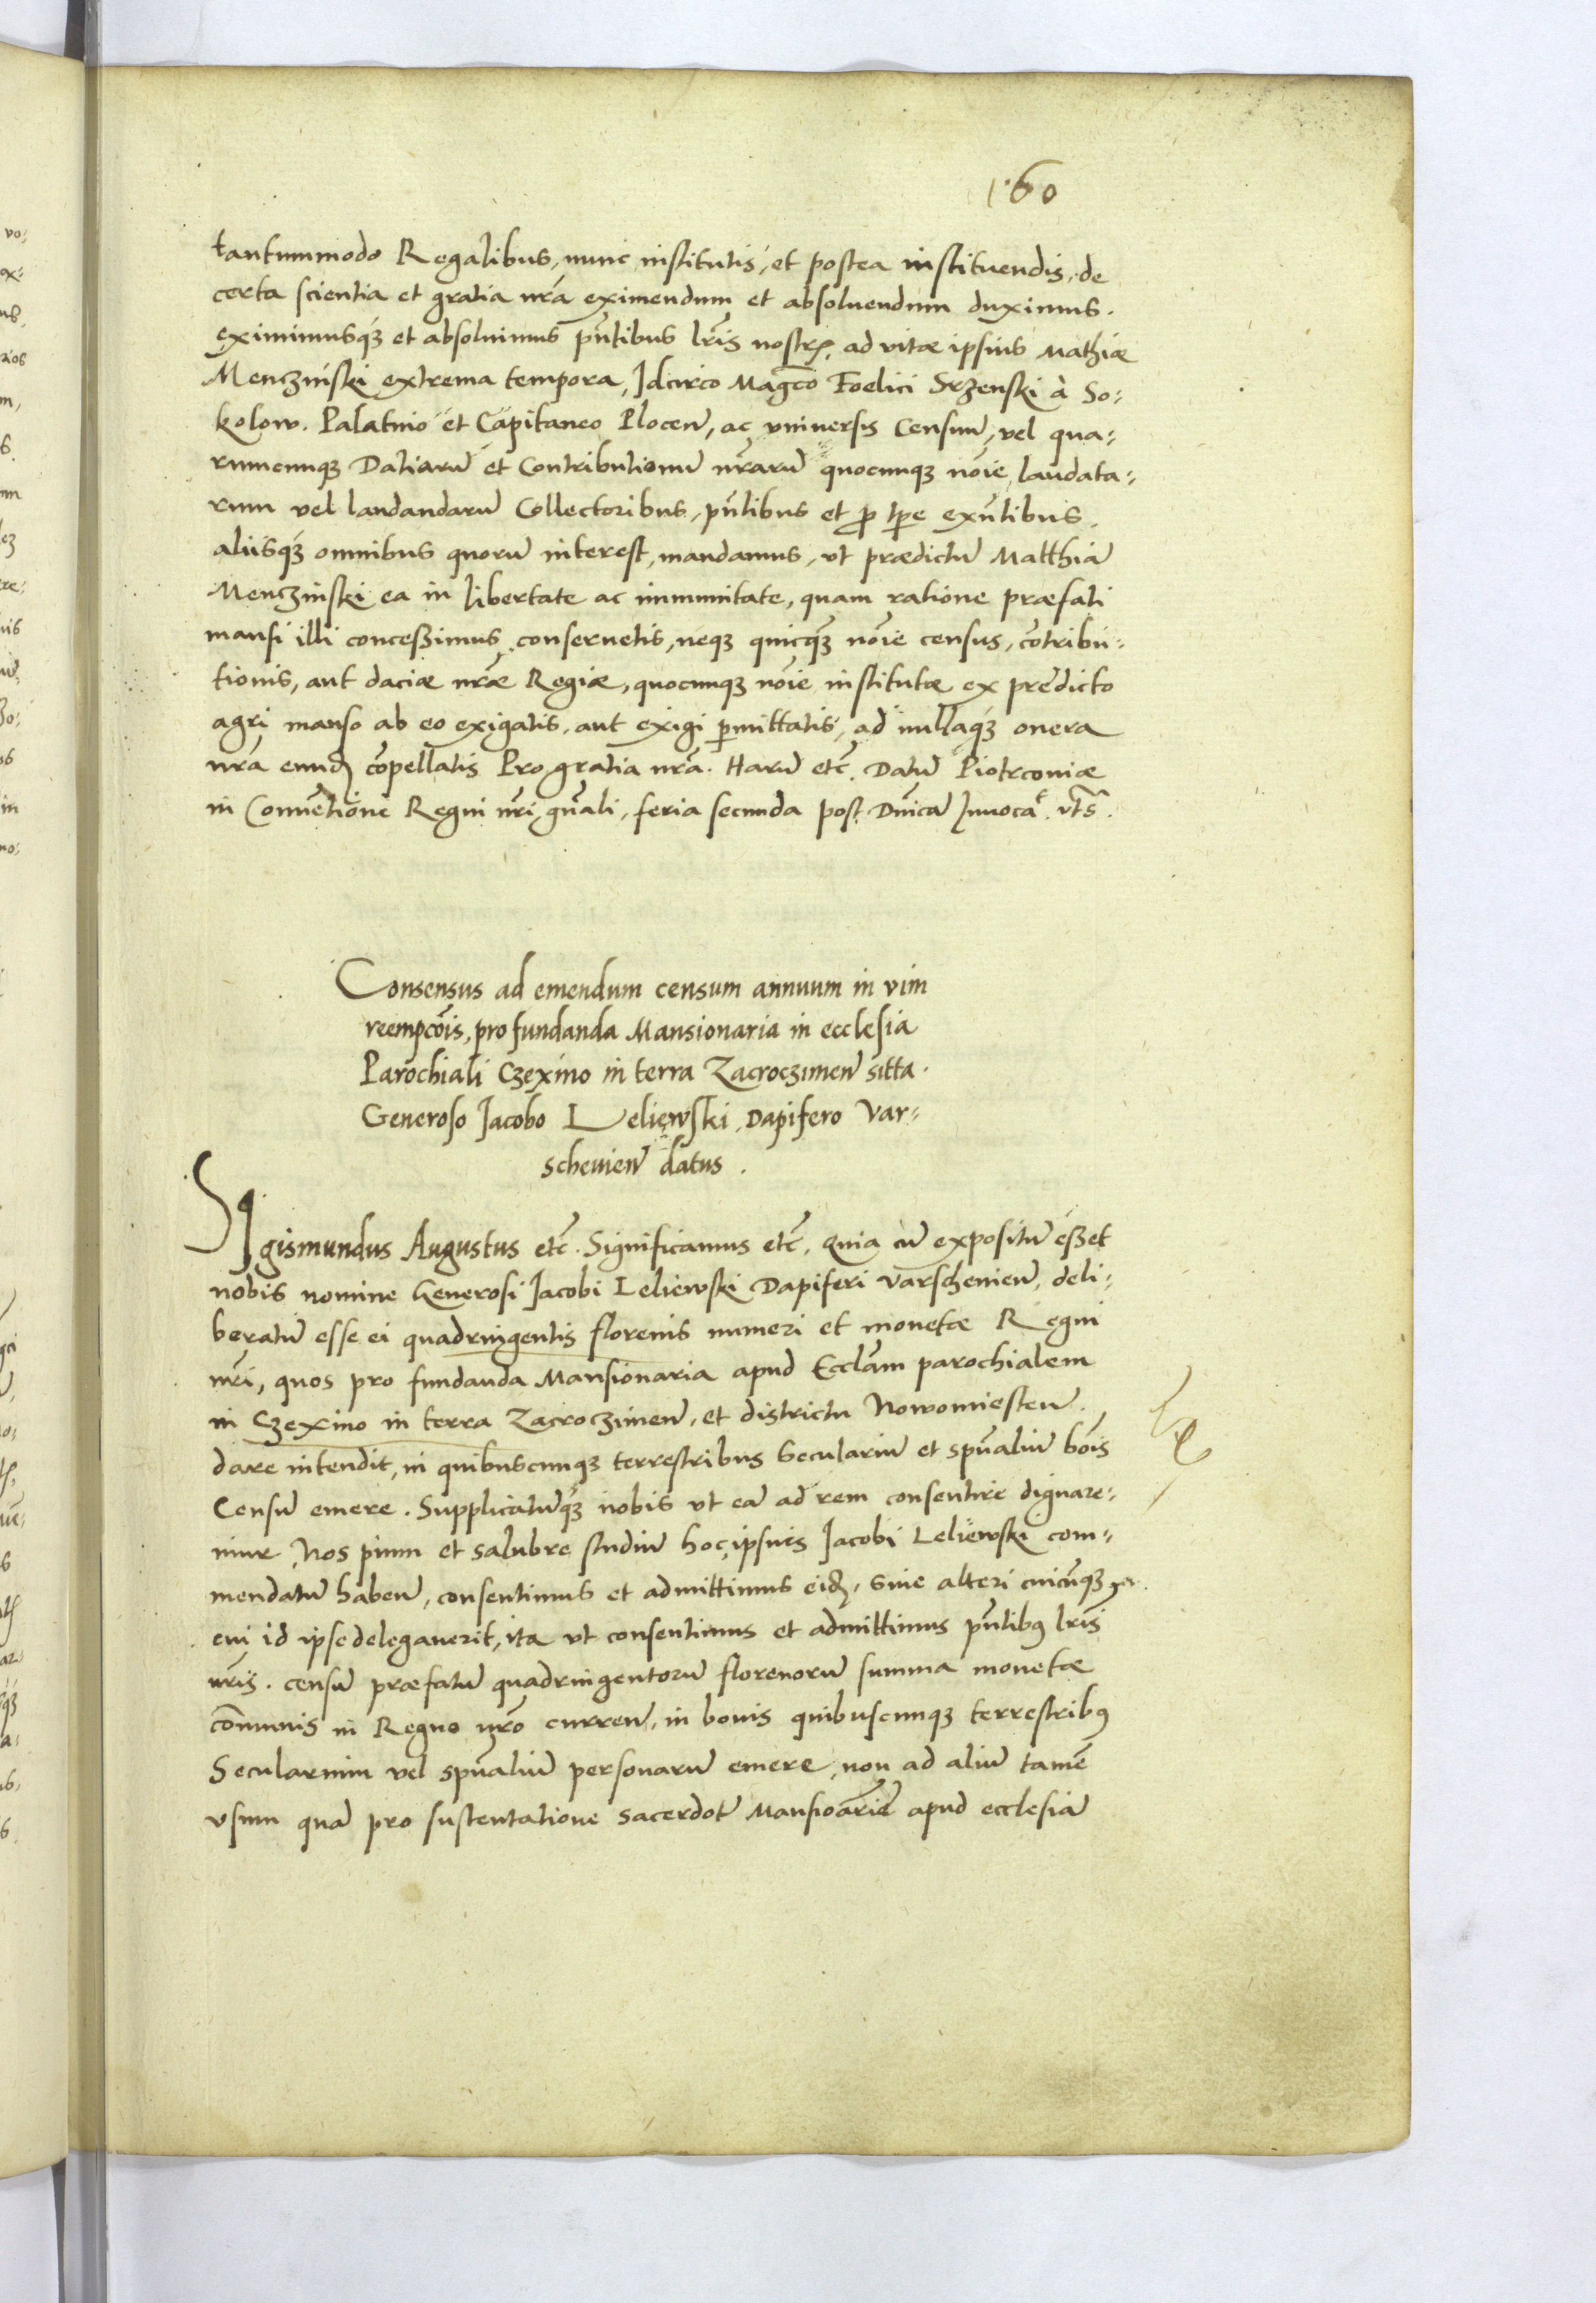 160
tantummodo Regalibus, nunc institutis, et postea instituendis, de
certa scientia et gratia nrā eximendum et absoluendum duximus.
eximimusqȝ et absoluimus pñtibus lr̃is nostrꝭ, ad vitæ ipsius Mathiæ
Menczinski extrema tempora, Idcirco Mag̃co Foelici Srzenski à So-
kolow. Palatino et Capitaneo Plocen̄, ac vniuersis Censuū, vel qua-
rumcunqȝ Datiarū et Contributionū nr̃arū quocunqȝ nōie laudata-
rum vel laudandarū Collectoribus, pñtibus et ꝓ tp̄e exñtibus.
alijsqȝ omnibus quorū interest, mandamus, vt prædictū Matthiā
Menczinski ea in libertate ac immunitate, quam ratione præfati
mansi illi conceßimus conseruetis, neqȝ quicqȝ nōie census, cōtribu-
tionis, aut daciæ nr̃æ Regiæ, quocunqȝ nōie institutæ ex prędicto
agri manso ab eo exigatis, aut exigi ꝑmittatis, ad nullaqȝ onera
nr̃a eundꝫ cōpellatis Pro gratia nr̃a. Harū etc̄. Datū Piotrconiæ
in Conuētione Regni nr̃i gñali, feria secunda post Dñicā Inuocā. vts̄.
Consensus ad emendum censum annuum in vim
reempcōis, pro fundanda Mansionaria in ecclesia
Parochiali Czexino in terra Zacroczimen̄ sitta.
Generoso Jacobo Leliewski, Dapifero Var-
scheuien̄ datus.
SIgismundus Augustus etc̄. Significamus etc̄. Quia cū expositū eßet
nobis nomine Generosi Jacobi Leliewski Dapiferi Varscheuien̄, deli-
beratū esse ei quadringentis florenis numeri et monetæ Regni
nr̃i, quos pro fundanda Mansionaria apud Eccl̃am parochialem
in Czexino in terra Zacroczimen̄, et districtu Nowomiesten̄.
dare intendit, in quibuscunqȝ terrestribus Seculariū et spūaliū bōis
Censū emere. Supplicatūqȝ nobis vt eā ad rem consentire dignare-
mur, Nos pium et salubre studiū hoc ipsius Jacobi Leliewski com-
mendatū haben̄, consentimus et admittimus eidꝫ, siue alteri cuicūqȝ
cui id ipse delegauerit, ita vt consentimus et admittimus pñtibꝰ lr̃is
nr̃is. censū præfatū quadringentorū florenorū summa monetæ
cōmunis in Regno nr̃o curren̄, in bonis quibuscunqȝ terrestribꝰ
Secularium vel spūaliū personarū emere, non ad aliū tamē
vsum quā pro sustentatione sacerdotū Mansioāriē apud ecclesiā